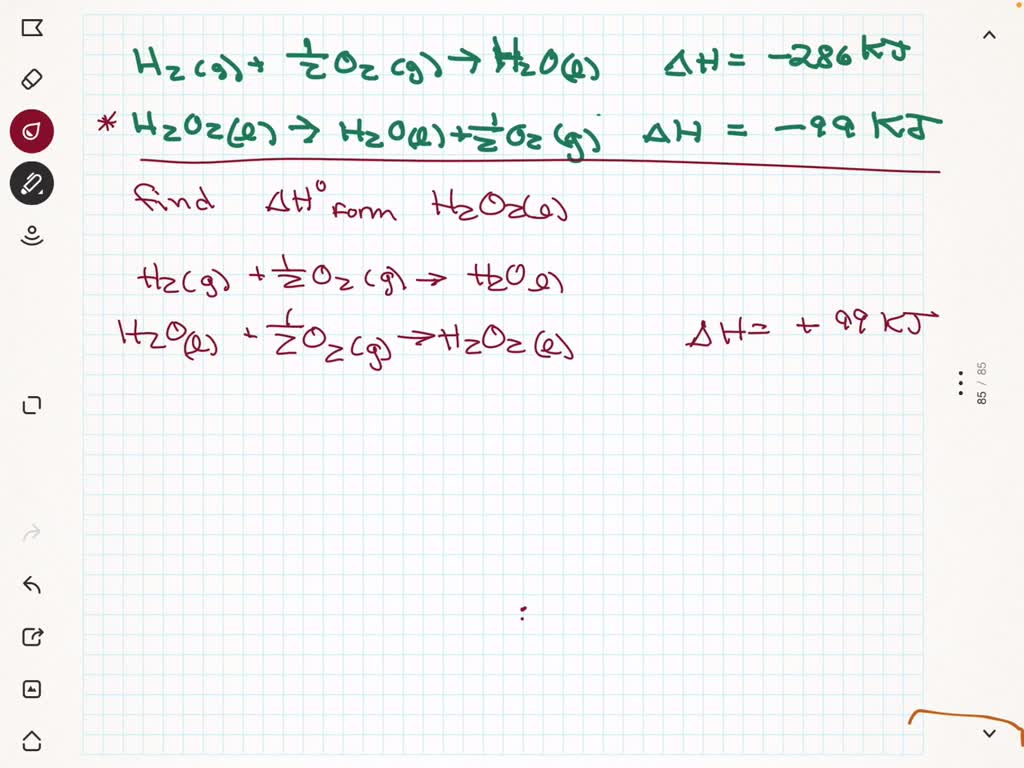 H₂(g) + ½O₂(g) → H₂O(l) ΔH = -286 KJ
* H₂O₂(l) → H₂O(l) + ½O₂(g) ΔH = -99 KJ
find ΔH° form H₂O₂(l)
H₂(g) + ½O₂(g) → H₂O(l)
H₂O(l) + ½O₂(g) → H₂O₂(l) ΔH = + 99 KJ
85 / 85